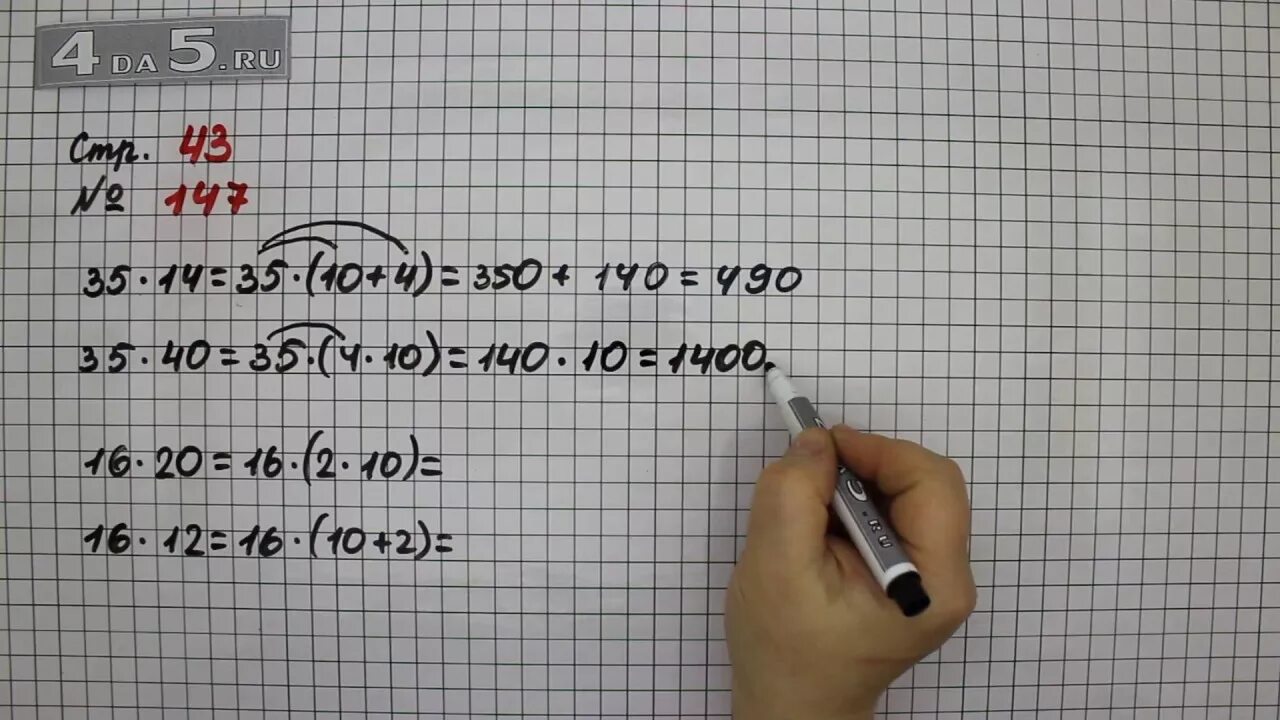 4 DA 5.RU
Стр. 43
№ 147
35 · 14 = 35 · (10 + 4) = 350 + 140 = 490
35 · 40 = 35 · (4 · 10) = 140 · 10 = 1400
16 · 20 = 16 · (2 · 10) =
16 · 12 = 16 · (10 + 2) =